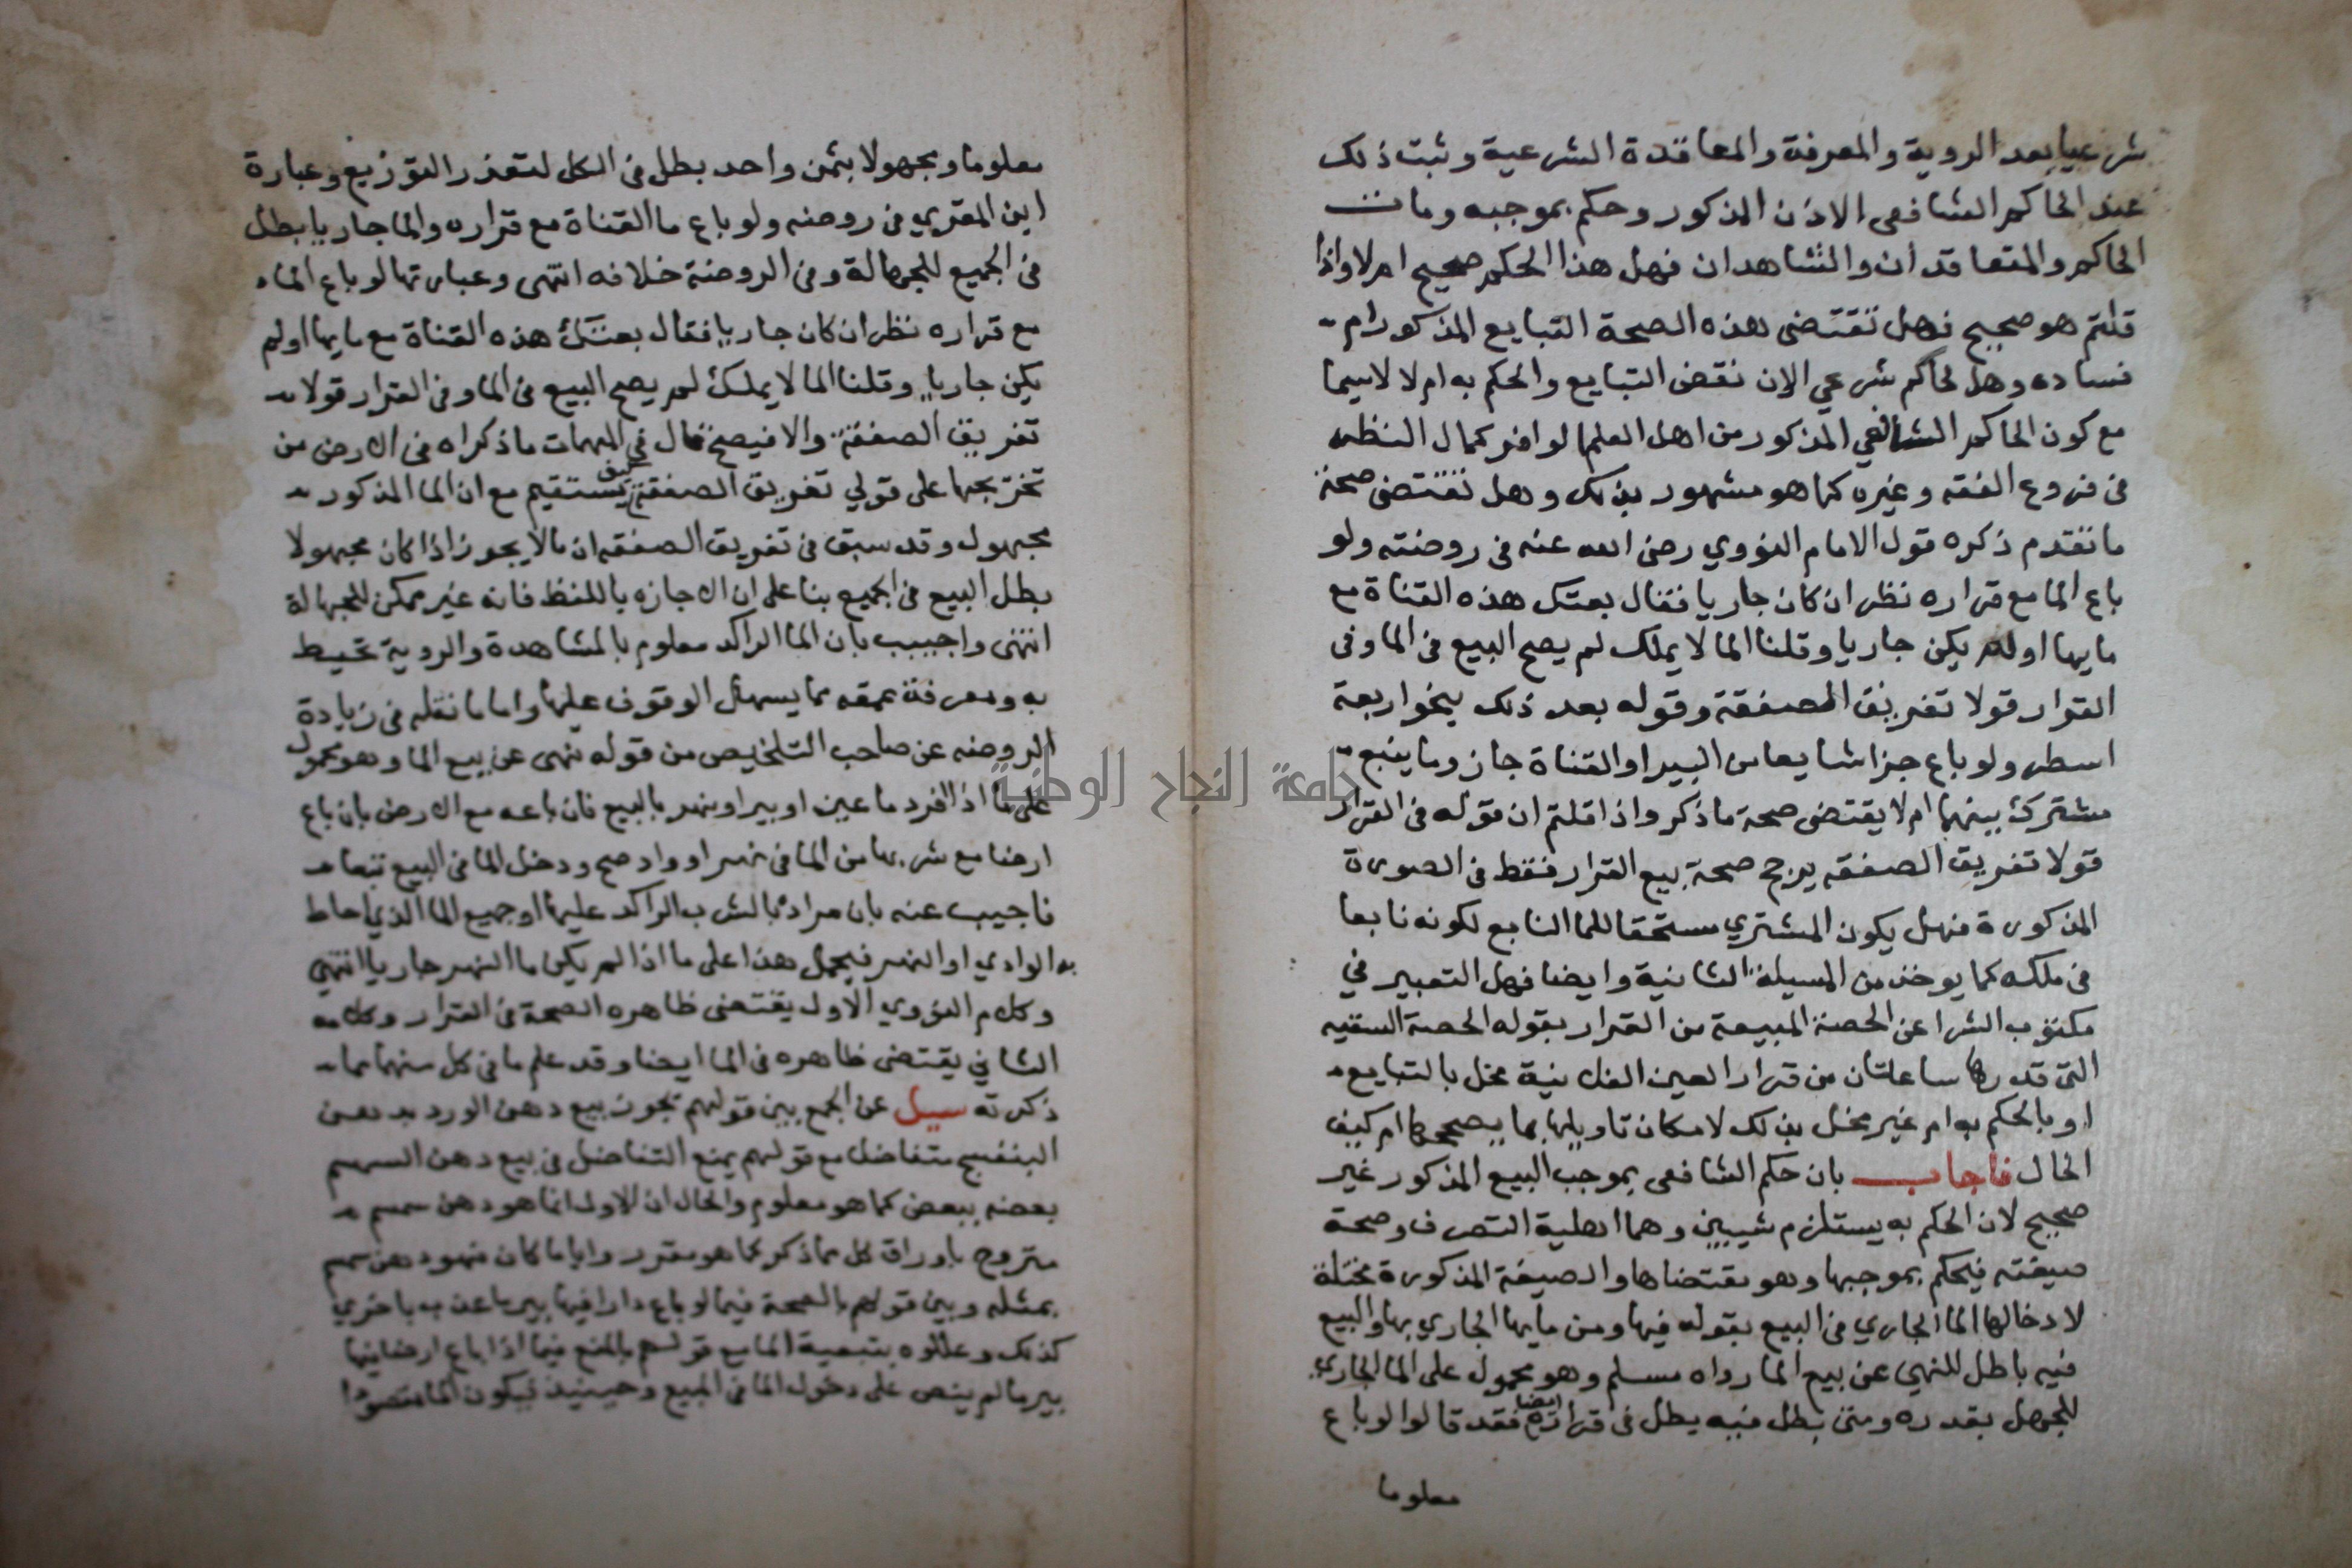 شرعيا بعد الروية والمعرفة والمعاقدة الشرعية وثبت ذلك
عند الحاكم الشافعى الاذن المذكور وحكم بموجبه ومات
الحاكم والمتعاقدان والشاهدان فهل هذا الحكم صحيح ام لا واذا
قلتم هو صحيح فهل تقتضى هذه الصحة التبايع المذكور ام
فساده وهل لحاكم شرعي الان نقض التبايع والحكم به ام لا لاسيما
مع كون الحاكم الشافعي المذكور من اهل العلم الوافر كمال النظر
فى فروع الفقه وغيره كما هو مشهور بذلك وهل تقتضى صحة
ما تقدم ذكره قول الامام النووي رضى الله عنه فى روضته ولو
باع الما مع قراره نظر ان كان جاريا فقال بعتك هذه القناة مع
مايها او لم يكن جاريا وقلنا الما لا يملك لم يصح البيع فى الما وفى
القرار قولا تفريق الصفقة وقوله بعد ذلك بنحو اربعة
اسطر ولو باع جزا شايعا من البير او القناة جاز وما ينبع
مشترك بينهما ام لا يقتضى صحة ما ذكر واذا قلتم ان قوله فى القرار
قولا تفريق الصفقه يرجح صحة بيع القرار فقط فى الصورة
المذكورة فهل يكون المشتري مستحقا للما النابع لكونه نابعا
فى ملكه كما يوخذ من المسيلة الثانية وايضا فهل التعبير في
مكتوب الشرا عن الحصة المبيعة من القرار بقوله الحصة السقيه
التى قدرها ساعتان من قرار العين الفلانية مخل بالتبايع
او بالحكم به ام غير مخل بذلك لامكان تاويلها بما يصححها ام كيف
الحال فاجاب بان حكم الشافعى بموجب البيع المذكور غير
صحيح لان الحكم به يستلزم شييين وهما اهلية التصرف وصحة
صيغته فيحكم بموجبها وهو مقتضاها والصيغة المذكورة مختلة
لادخالها الما الجاري فى البيع بقوله فيها ومن مايها الجاري بها والبيع
فيه باطل للنهي عن بيع الما رواه مسلم وهو محمول على الما الجاري
للجهل بقدره ومتى بطل فيه يطل فى قراره ايضا فقد قالوا لو باع
معلوما
معلوما ومجهولا بثمن واحد بطل فى الكل لتعذر التوزيع وعبارة
ابن المقري فى روضه ولو باع ما القناة مع قراره والما جار يا بطل
فى الجميع للجهالة وفى الروضة خلافه انتهى وعبارتها لو باع الماء
مع قراره نظر ان كان جاريا فقال بعتك هذه القناة مع مايها او لم
يكن جاريا وقلنا الما لا يملك لم يصح البيع فى الما وفى القرار قولا
تفريق الصفقة والا فيصح قال في المهمات ما ذكراه فى الارض من
تخريجها على قولي تفريق الصفقة كيف يستقيم مع ان الما المذكور
مجهول وقد سبق فى تفريق الصفقه ان مالا يجوز اذا كان مجهولا
بطل البيع فى الجميع بنا على ان الاجازه باللفظ فانه غير ممكن للجهالة
انتهى واجيب بان الما الراكد معلوم بالمشاهدة والروية تحيط
به ومعرفة عمقه مما يسهل الوقوف عليها واما ما نقله فى زيادة
الروضه عن صاحب التلخيص من قوله نهى عن بيع الما وهو محمول
على ما اذا افرد ما عين او بير او نهر بالبيع فان باعه مع الارض بان باع
ارضا مع شربها من الما فى نهر او واد صح ودخل الما فى البيع تبعا
فاجيب عنه بان مراده بالشرب الراكد عليها او جميع الما الذي احاط
به الوادي او النهر فيحمل هذا على ما اذا لم يكن ما النهر جاريا انتهى
وكلام النووي الاول يقتضى ظاهره الصحة فى القرار وكلامه
الثاني يقتضى ظاهره فى الما ايضا وقد علم ما فى كل منهما مما
ذكرته سيل عن الجمع بين قولهم تجوز بيع دهن الورد بدهن
البنفسج متفاضلا مع قولهم يمنع التفاضل فى بيع دهن السمسم
بعضه ببعض كما هو معلوم والحال ان الاول انما هو دهن سمسم
متروح باوراق كل مما ذكر كما هو مقرر واياما كان فهو دهن سمسم
بمثله وبين قولهم بالصحة فيما لو باع دارا فيها بير ما عذب باخري
كذلك وعللوه بتبعية الما مع قولهم بالمنع فيما اذا باع ارضا فيها
بير ما لم ينص على دخول الما فى المبيع وحينيذ فيكون الما مقصودا
جامعة النجاح الوطنية